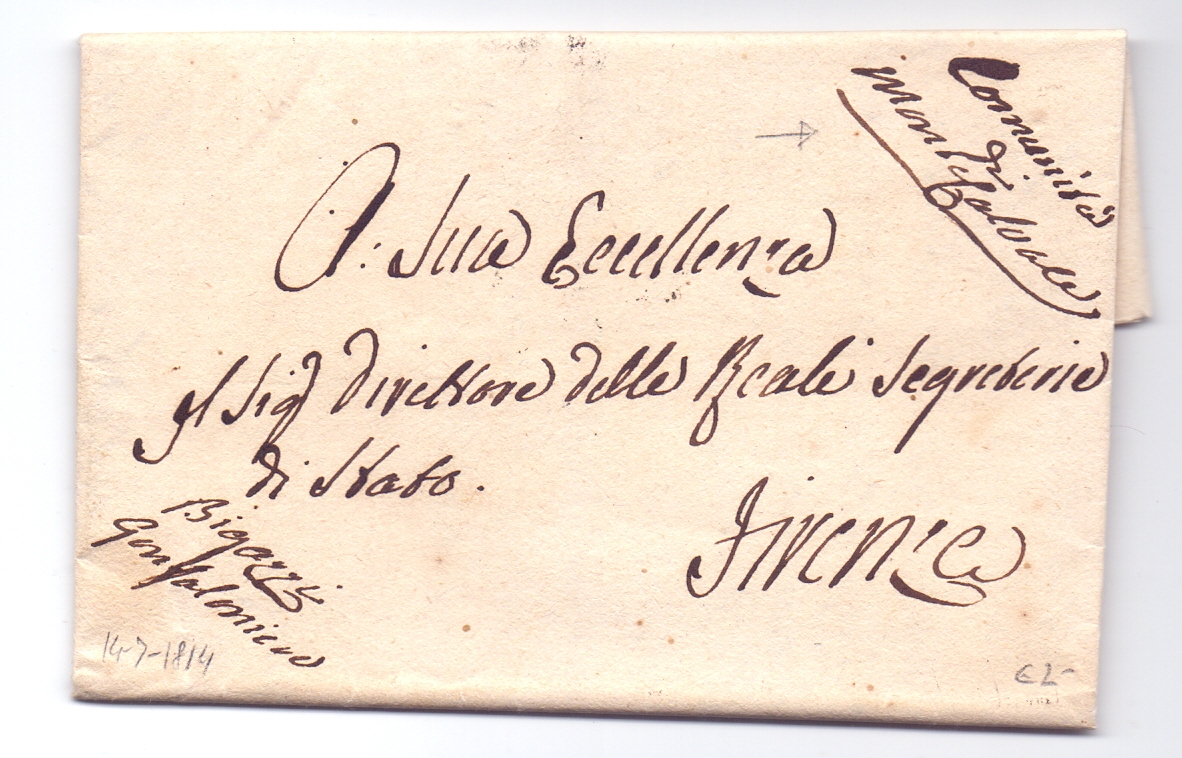 Comunità
di
Monte Catvale
A: Sua Eccellenza
Il Sig Direttore delle Reali Segreterie
di Stato.
Firenze
Bigazzi
Gonfaloniere
14-7-1814